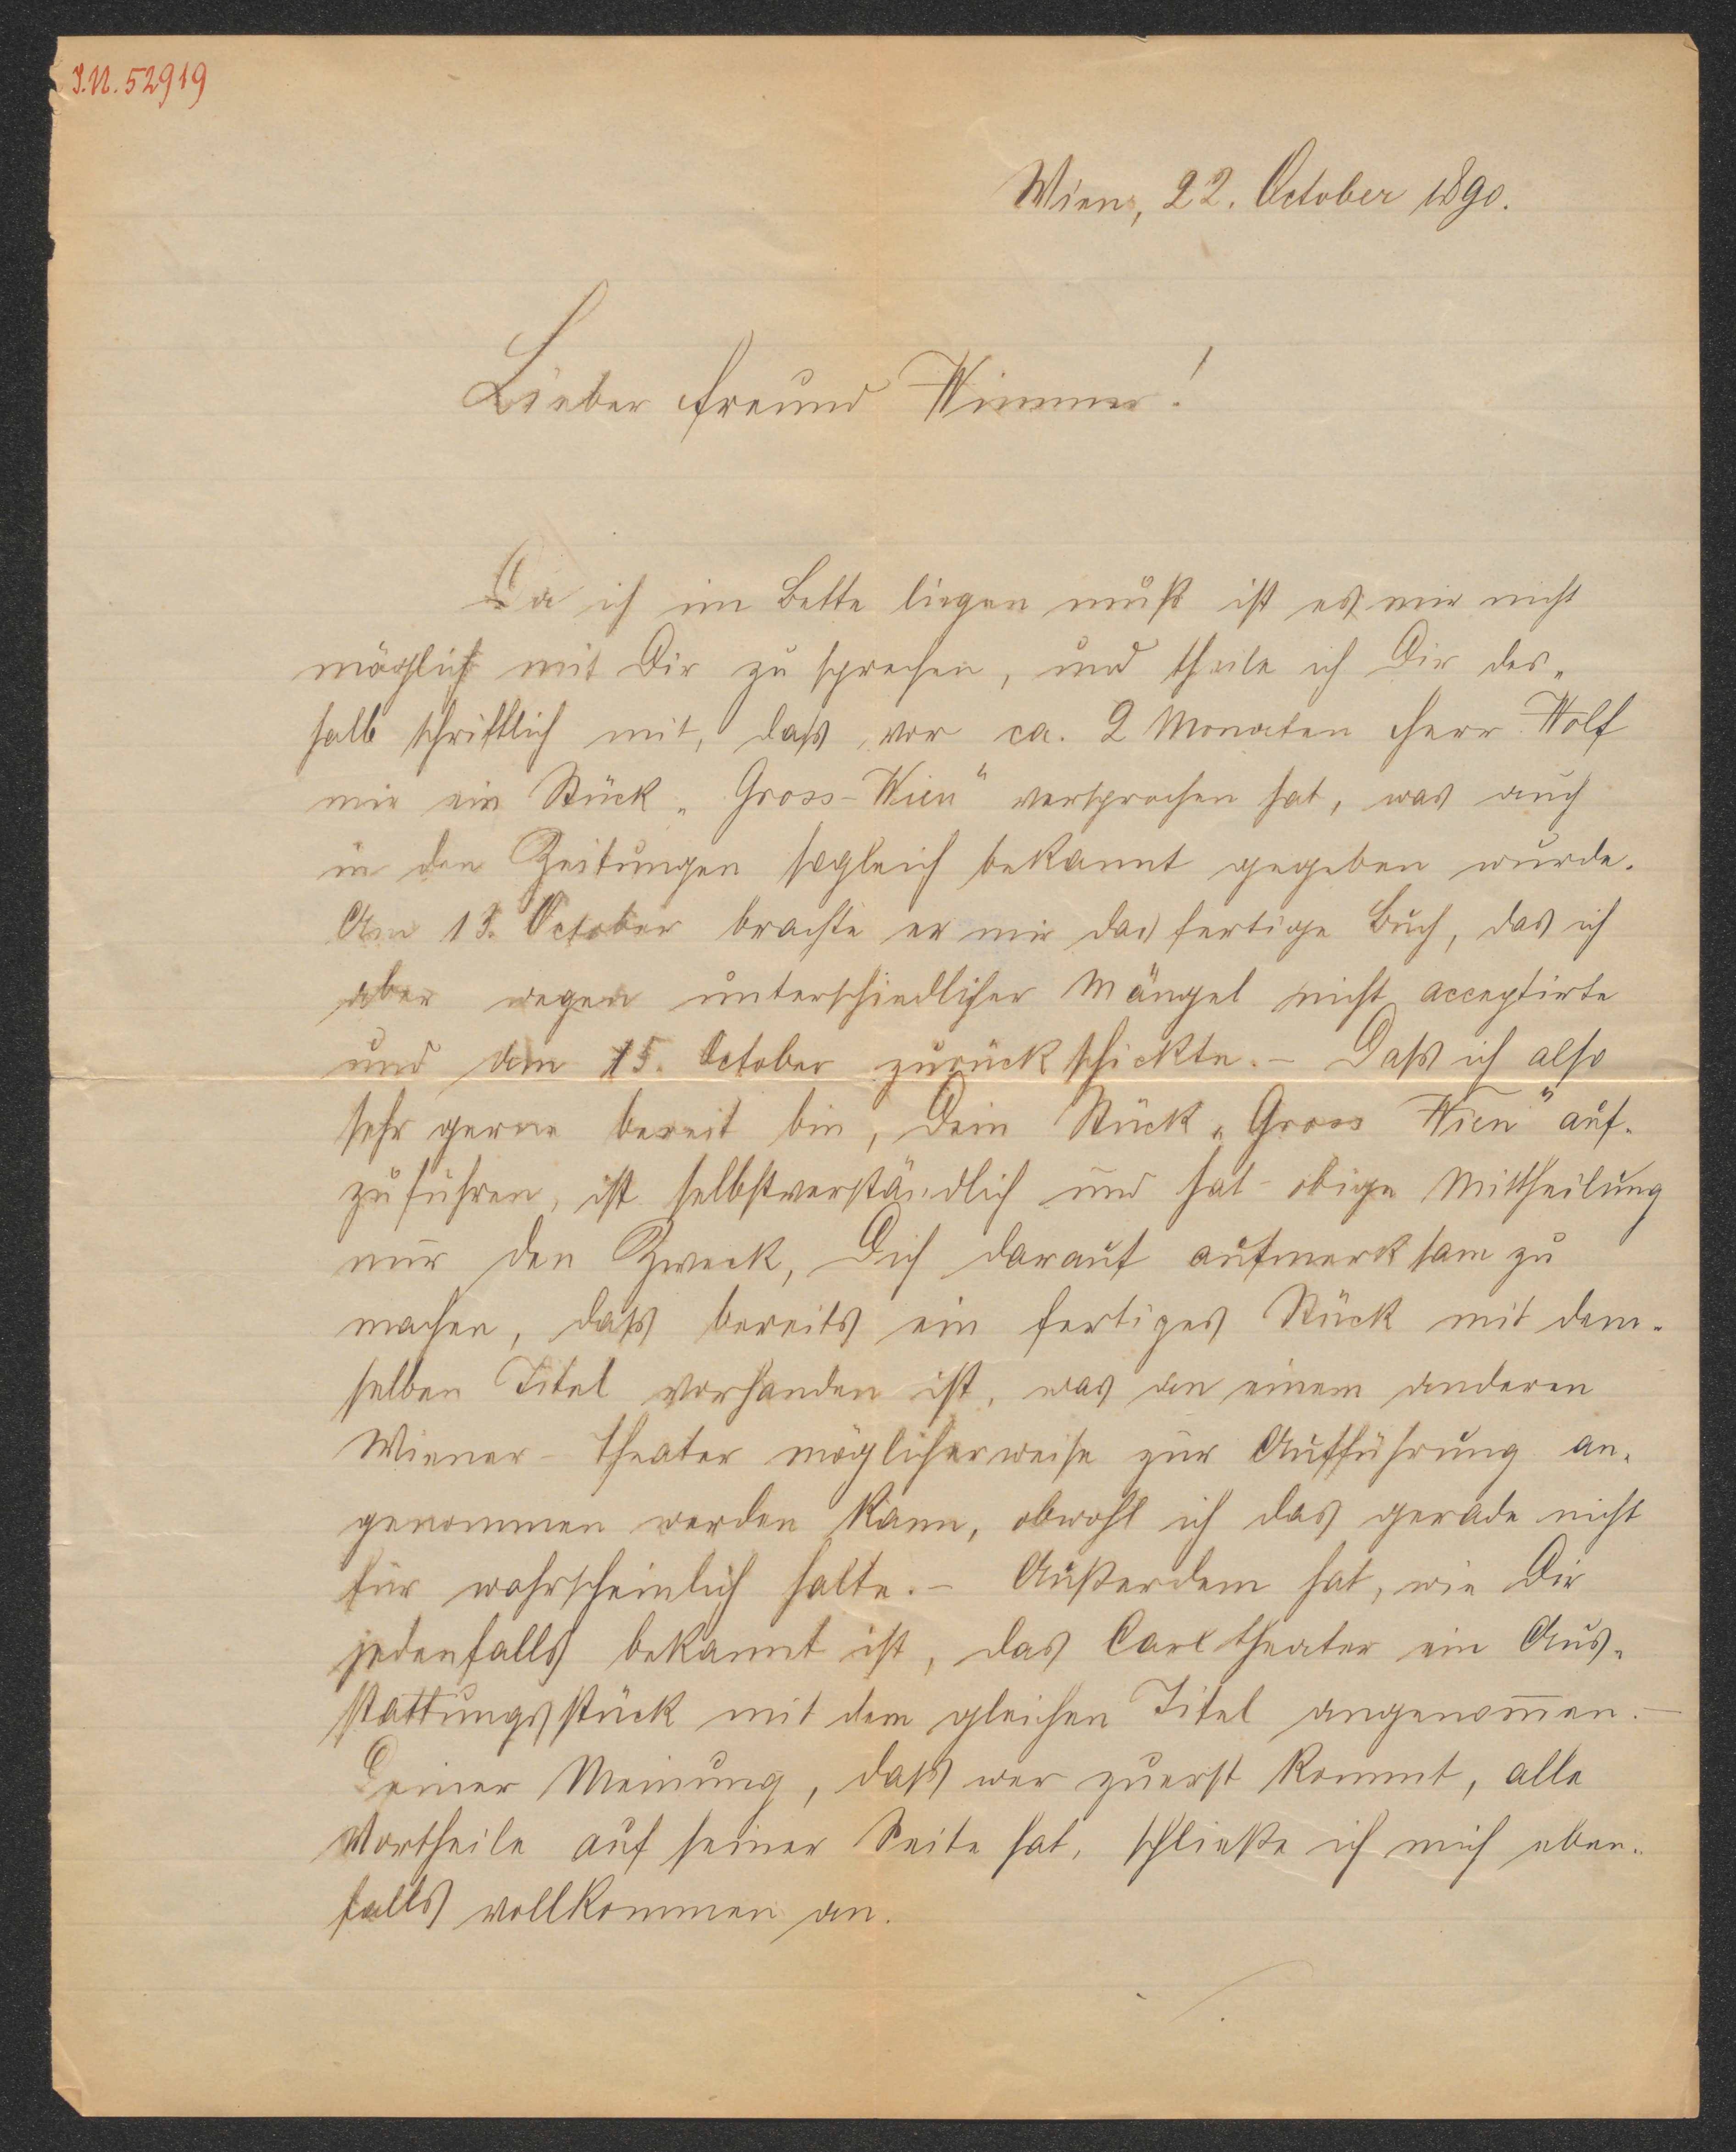 I.N. 52919
Wien, 22. October 1890.
Lieber Freund Wimmer!
Da ich im Bette liegen muß ist es mir nicht
möglich mit Dir zu sprechen, und theile ich Dir des„
halb schriftlich mit, daß vor ca. 2 Monaten Herr Wolf
mir ein Stück „Gross-Wien“ versprochen hat, was auch
in den Zeitungen sogleich bekannt gegeben wurde.
Am 13. October brachte er mir das fertige Buch, das ich
aber wegen unterschiedlicher Mängel nicht acceptirte
und am 15. October zurückschickte. – Daß ich also
sehr gerne bereit bin, Dein Stück „Gross Wien“ auf„
zuführen, ist selbstverständlich und hat obige Mittheilung
nur den Zweck, Dich darauf aufmerksam zu
machen, daß bereits ein fertiges Stück mit dem„
selben Titel vorhanden ist, was an einem anderen
Wiener-Theater möglicherweise zur Aufführung an„
genommen werden kann, obwohl ich das gerade nicht
für wahrscheinlich halte. – Außerdem hat, wie Dir
jedenfalls bekannt ist, das Carltheater ein Aus„
stattungsstück mit dem gleichen Titel angenom̅en. –
Deiner Meinung, daß wer zuerst kommt, alle
Vortheile auf seiner Seite hat, schließe ich mich eben„
falls vollkommen an.